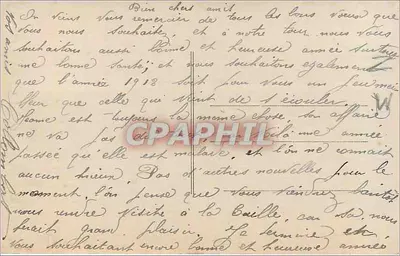 Bien chers amis
On vient vous remercier de tous les bons vœux que
vous nous souhaitez, et à notre tour nous vous
souhaitons aussi bonne et heureuse année surtout
une bonne santé, et nous souhaitons également
que l'année 1912 soit pour vous un peu meil
lleur que celle qui vient de s'écouler.
est toujours la même chose, son affaire
ne va pas année
passée qu'elle est malade, et l'on ne connait
aucun mieux. Pas d'autres nouvelles pour le
moment, l'on pense que vous viendrez bientôt
nous rendre visite à la Caille, car sa nous
ferait grand plaisir. Je termine en
vous souhaitant encore bonne et heureuse année
CPARAMA